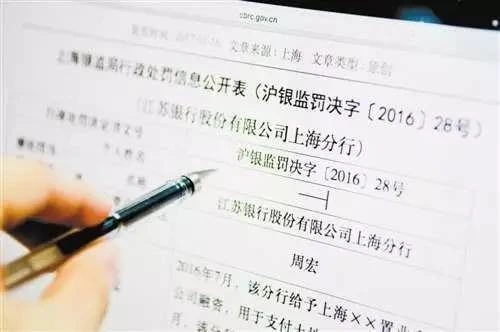 cbrc.gov.cn
发表时间 文章来源：上海 文章类型：原创
上海银监局行政处罚信息公开表（沪银监罚决字〔2016〕28号）
（江苏银行股份有限公司上海分行）
行政处罚决定书文号 沪银监罚决字〔2016〕28号
个人姓名
名称 江苏银行股份有限公司上海分行
周宏
2016年7月，该分行给予上海××置业
公司融资，用于支付土地
月，该分行